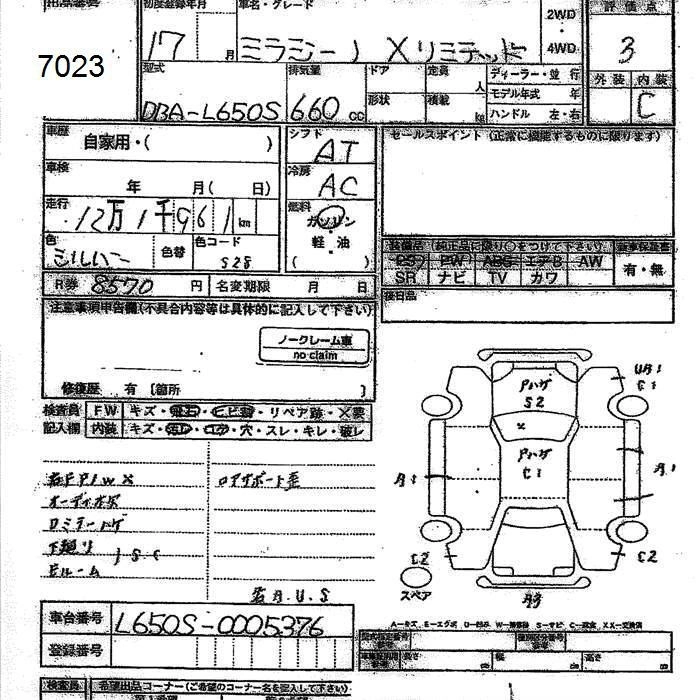 初度登録年月 車名・グレード 2WD 評価点
7023 17 月 ミラジーノ Xリミテッド ・ 4WD 3
型式 排気量 ドア 定員 人 ディーラー・並 行 外装 内装
DBA-L650S 660 cc 形状 積載 kg モデル年式 年 C
ハンドル 左・右
車歴 自家用・( ) シフト AT セールスポイント (正常に機能するものに限ります)
車検 年 月( 日) 冷房 AC
走行 12万1千961 km 燃料 ガソリン
色 シルバー 色替 色コード S28 軽・油 ( )
装備品 (純正品に限り○をつけて下さい) 新車保証書
PS PW ABS エアB AW 有・無
SR ナビ TV カワ
R券 8570 円 名変期限 月 日 後日品
注意事項申告欄(不具合内容等は具体的に記入して下さい)
ノークレーム車
no claim
修復歴 有 [箇所 ]
検査員 FW キズ・飛石・ヒビ割・リペア跡・X要
記入欄 内装 キズ・汚レ・コゲ・穴・スレ・キレ・破レ
Pハゲ
S2
UA1
C1
x
Pハゲ
C1
A1 A1
C2 C2
スペア
A3
右FPIWX ロアサポート歪
オーディオ欠
Dミラーハゲ
下廻リ
Eルーム
} S.C
右A.U.S
車台番号 L650S-0005376
登録番号
A－キズ、E－エクボ
型式指定番号 類別区分番号
長さ cm 幅 cm 高さ cm
検査員 希望出品コーナー(ご希望のコーナー名を記入して下さい)